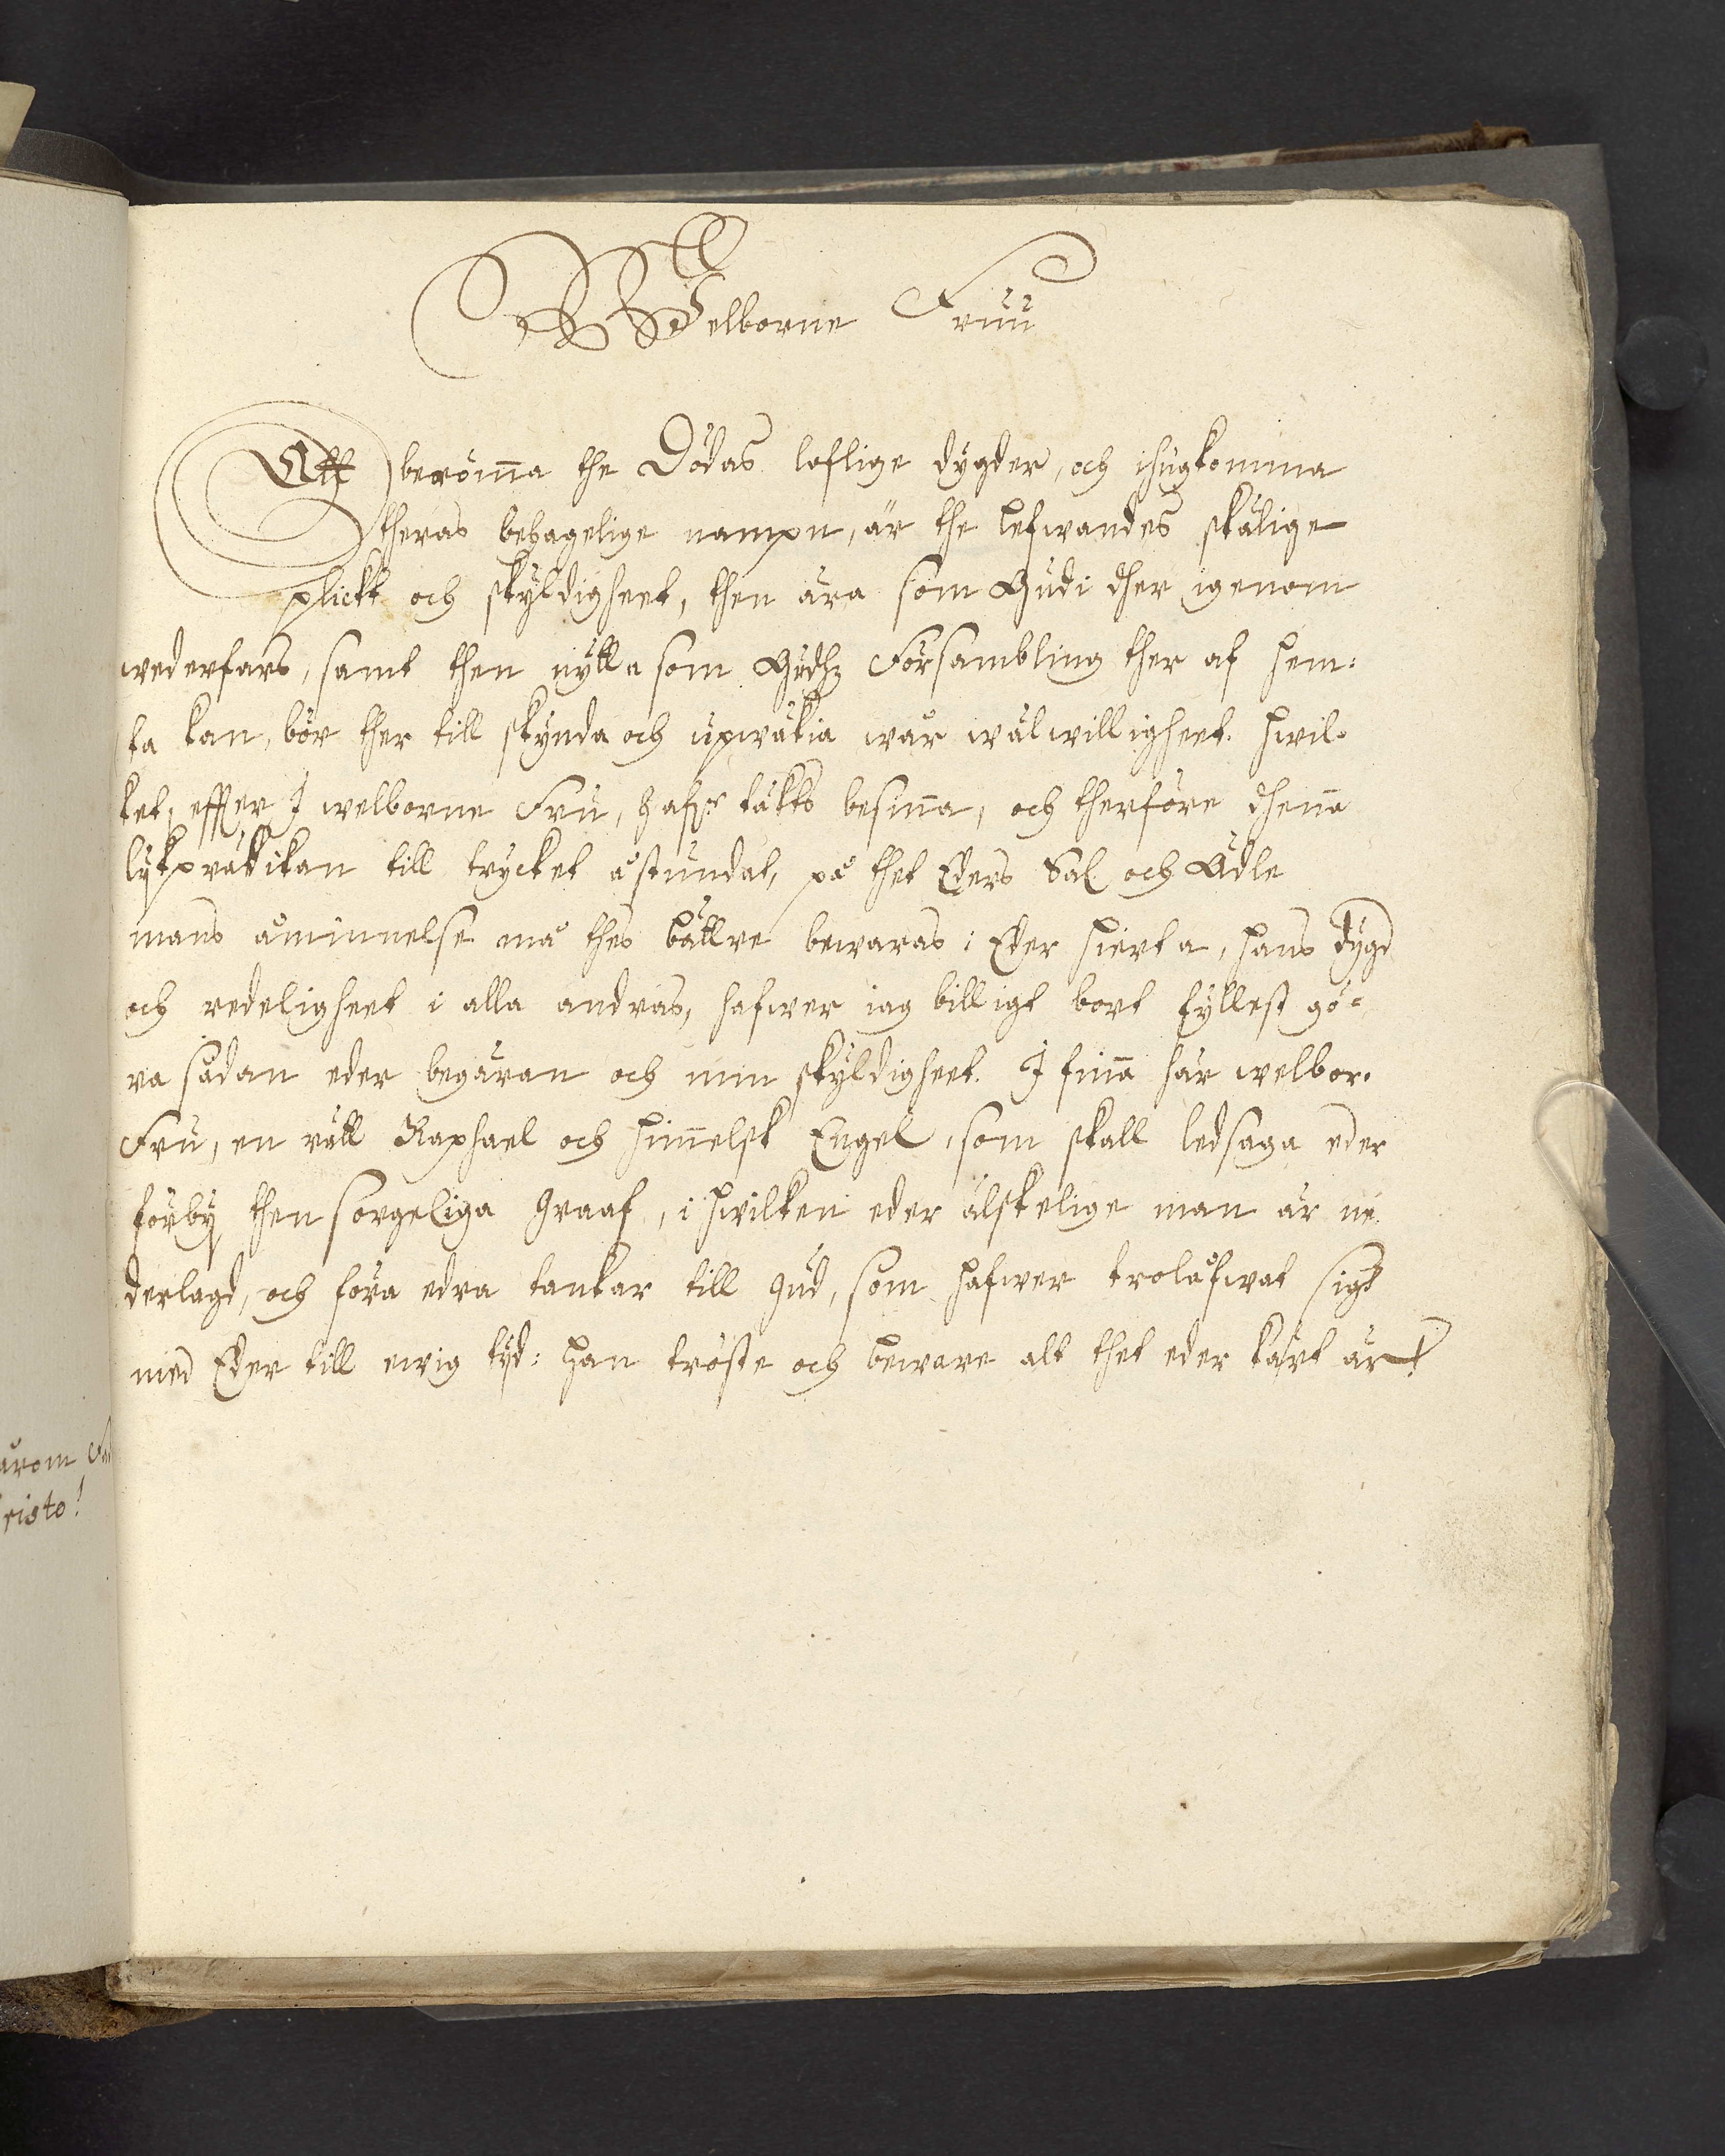 WElborne Fruu
Att berömma the Dödas loflige dygder, och ihugkomma
theras behagelige nampn, är the lefwandes skälige
plickt och skyldigheet, then ära som Gudi dher igenom
wederfars, samt then nytta som Gudhz Försambling ther af hem:
ta kan, bör ther till skynda och upwäkia wår wälwilligheet. Hwil-
ket, effter I welborne Fru, hafr täkts besiña, och therföre dheña
lykprädikan till trycket åstundat, på thet Eders Sal och Ädle
mans åminnelse må thes bättre bewaras i Eder hierta, hans dygd
och redeligheet i alla andras, hafwer iag billigt bort fyllest gö-
ra sådan eder begäran och min skyldigheet. I fiña här welbor.
Fru, en rätt Raphael och himelsk Engel, som skall ledsaga eder
förby then sorgeliga graaf, i hwilken eder älskelige man är ne
derlagd, och föra edra tankar till Gud, som hafwer trolåfwat sigh
med Eder till ewig tyd: han tröste och beware alt thet eder kärt är
ärom Fa
risto!